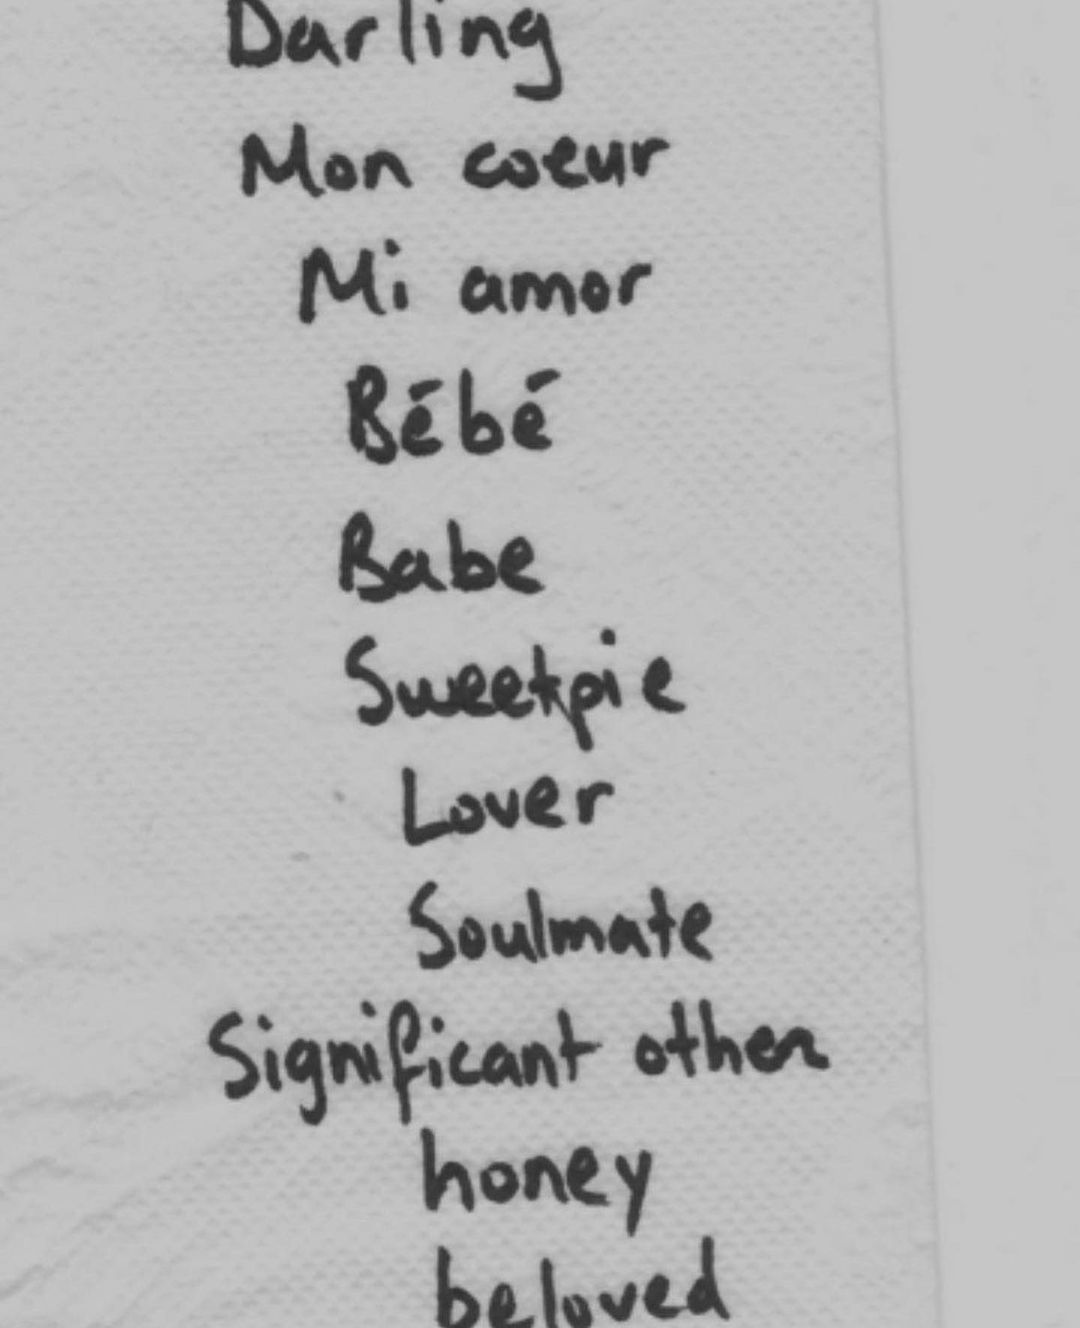 Darling
Mon coeur
Mi amor
Bébé
Babe
Sweetpie
Lover
Soulmate
Significant other
honey
beloved